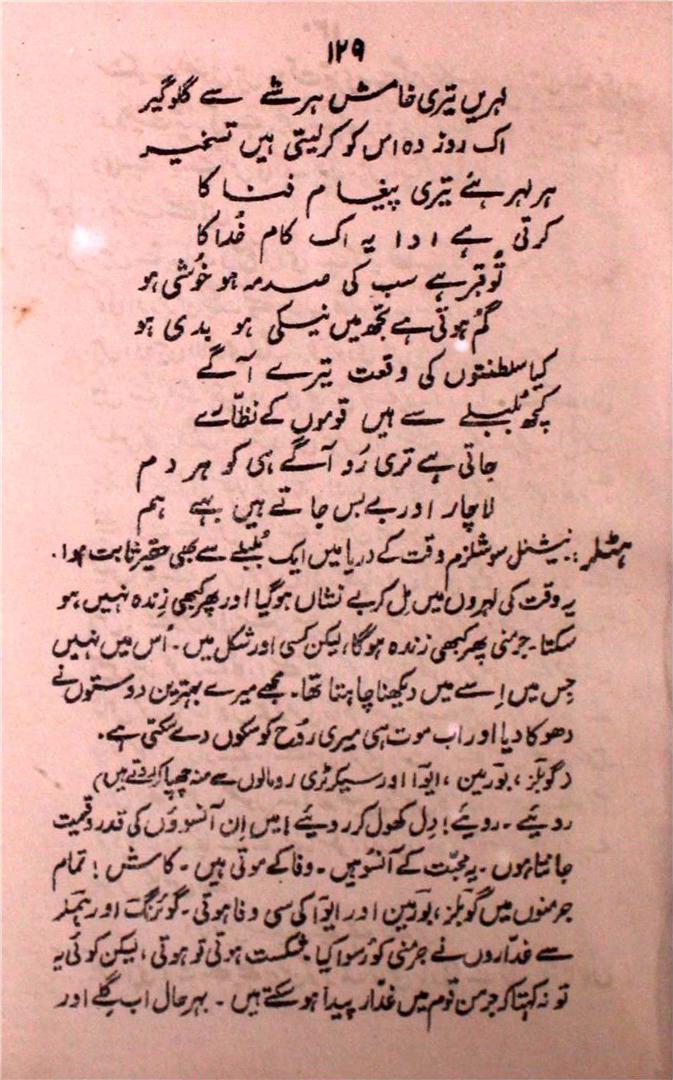 ۱۲۹
لہریں تیری خامش ہر شے سے گلوگیر
اک روز دہ اس کو کرلیتی ہیں تسخیر
ہر لہر ہے تیری پیغام فنا کا
کرتی ہے ادا یہ اک کام خُدا کا
تُو قبر ہے سب کی صدمہ ہو خوُشی ہو
گُم ہوتی ہے تجھ میں نیکی ہو بدی ہو
کیا سلطنتوں کی وقعت تیرے آگے
کچھ بُلبلے سے ہیں قوموں کے نظّارے
جاتی ہے تری رَو آگے ہی کو ہر دم
لاچار اور بے بس جاتے ہیں بہے ہم
ہٹلر: نیشنل سوشلزم وقت کے دریا میں ایک بُلبلے سے بھی حقیر ثابت ہوا۔
یہ وقت کی لہروں میں مِل کر بے نشاں ہوگیا اور پھر کبھی زندہ نہیں ہو
سکتا۔ جرمنی پھر کبھی زندہ ہوگا، لیکن کسی اور شکل میں۔ اُس میں نہیں
جِس میں اِسے میں دیکھنا چاہتا تھا۔ مجھے میرے بہترین دوستوں نے
دھوکا دیا اور اب موت ہی میری روُح کو سکوں دے سکتی ہے۔
(گوبلز، بورمین، ایوا اور سیکرٹری رومالوں سے منہ چھپا کر روتے ہیں)
روئیے۔ روئیے! دِل کھول کر روئیے! میں اِن آنسوؤں کی قدر و قیمت
جانتا ہوں۔ یہ محبّت کے آنسو ہیں۔ وفا کے موتی ہیں۔ کاش! تمام
جرمنوں میں گوبلز، بورمین اور ایوا کی سی وفا ہوتی۔ گوئرنگ اور ہملر
سے غدّاروں نے جرمنی کو رُسوا کیا۔ شکست ہوتی تو ہوتی، لیکن کوئی یہ
تو نہ کہتا کہ جرمن قوم میں غدّار پیدا ہو سکتے ہیں۔ بہرحال اب گلے اور